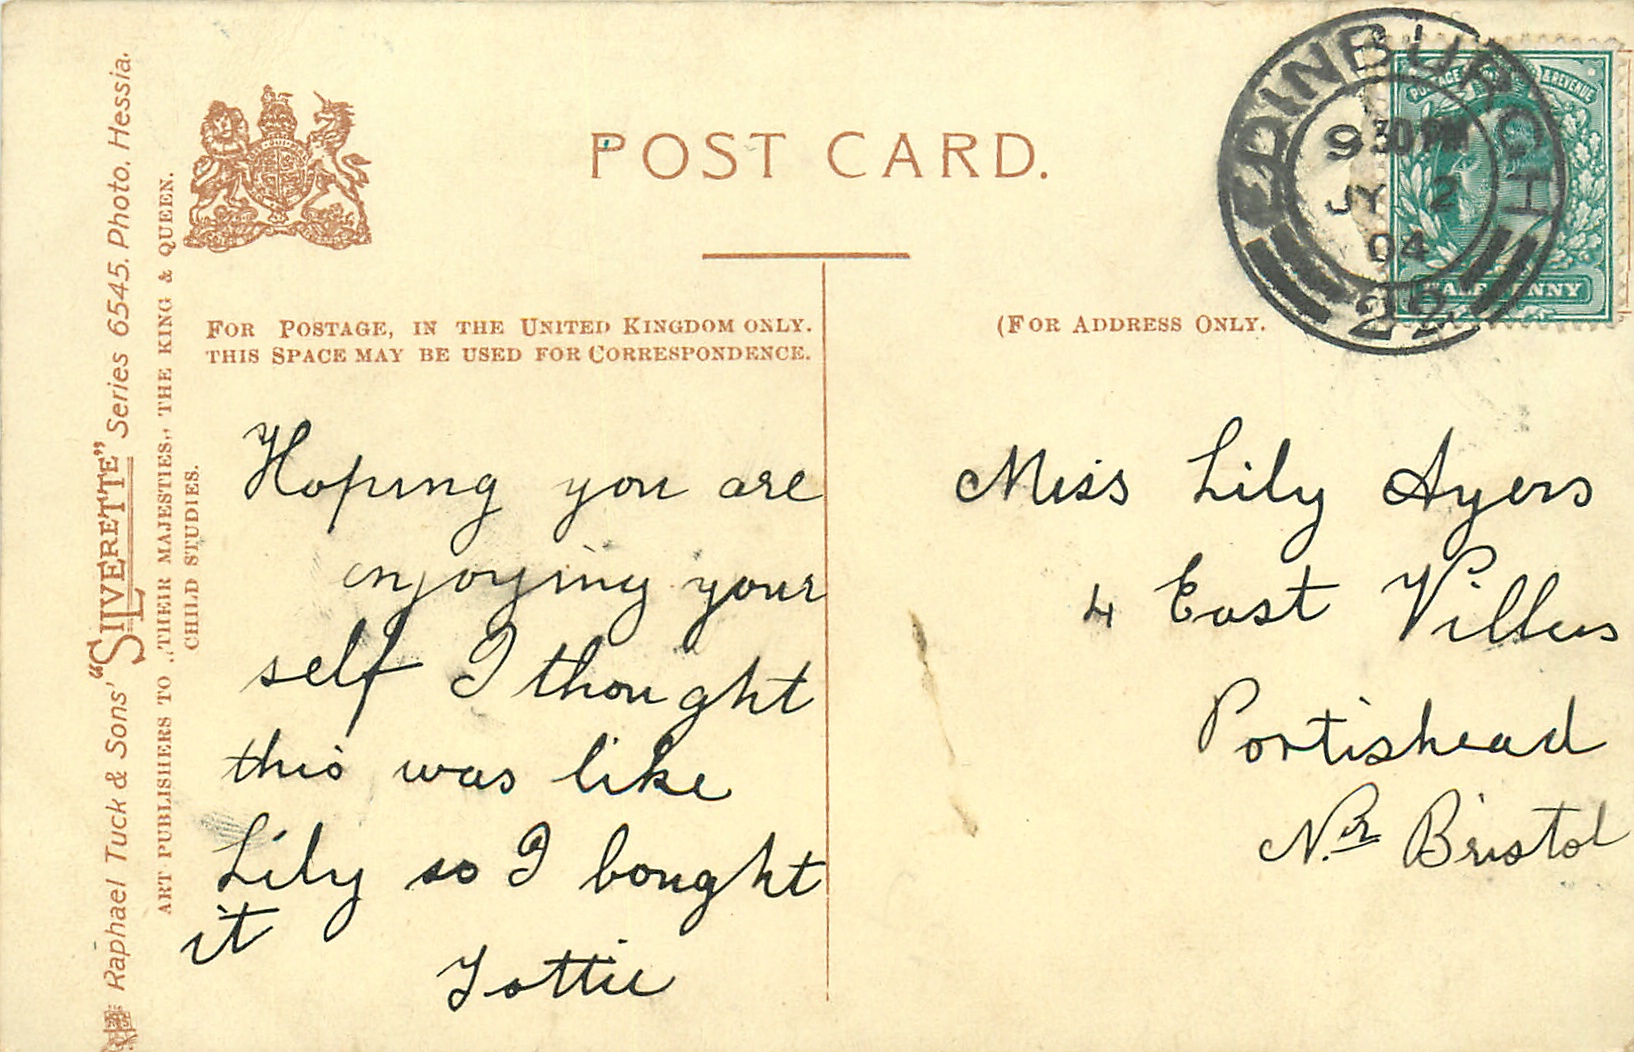 POST CARD.
Raphael Tuck & Sons' "SILVERETTE" Series 6545. Photo. Hessia.
ART PUBLISHERS TO „THEIR MAJESTIES„ THE KING & QUEEN.
CHILD STUDIES.
FOR POSTAGE, IN THE UNITED KINGDOM ONLY.
THIS SPACE MAY BE USED FOR CORRESPONDENCE.
Hoping you are
enjoying your
self I thought
this was like
Lily so I bought
it
Tottie
(FOR ADDRESS ONLY.
EDINBURGH
9 30 PM
JY 2
04
22
POSTAGE & REVENUE
HALFPENNY
Miss Lily Ayers
4 East Villas
Portishead
Nr. Bristol